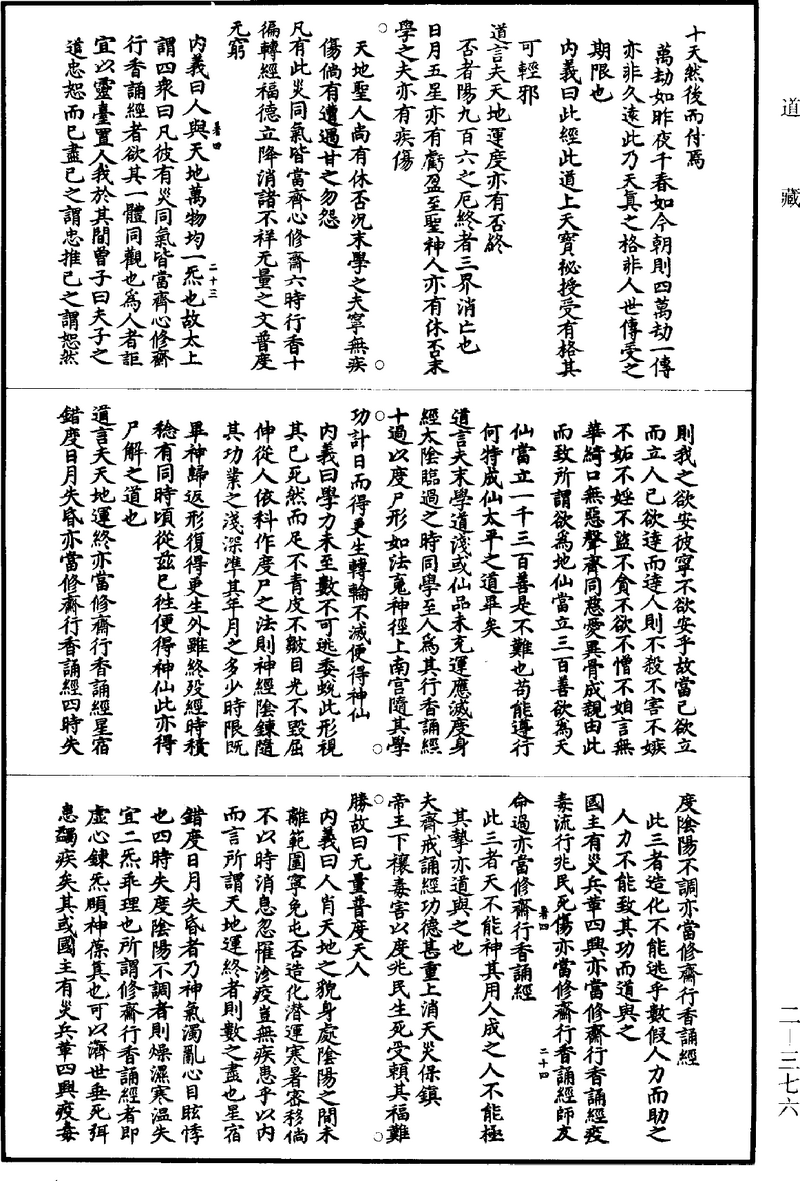 道藏
十天然後而付焉
萬劫如昨夜千春如今朝則四萬劫一傳
亦非久遠此乃天真之格非人世傳受之
期限也
內義曰此經此道上天寶祕授受有格其
可輕邪
道言夫天地運度亦有否終
否者陽九百六之厄終者三界消亡也
日月五星亦有虧盈至聖神人亦有休否末
學之夫亦有疾傷
天地聖人尚有休否况末學之夫寧無疾
傷倘有遭遇甘之勿怨
凡有此災同氣皆當齊心修齋六時行香十
徧轉經福德立降消諸不祥无量之文普度
无窮
暑四 二十三
內義曰人與天地萬物均一炁也故太上
謂四衆曰凡彼有災同氣皆當齊心修齋
行香誦經者欲其一體同觀也爲人者詎
宜以靈臺置人我於其間曾子曰夫子之
道忠恕而已盡己之謂忠推己之謂恕然
則我之欲安彼寧不欲安乎故當己欲立
而立人己欲達而達人則不殺不害不嫉
不妬不婬不盜不貪不欲不憎不妲言無
華綺口無惡聲齊同慈愛異骨成親由此
而致所謂欲爲地仙當立三百善欲爲天
仙當立一千三百善是不難也苟能遵行
何特成仙太平之道畢矣
道言夫末學道淺或仙品未充運應滅度身
經太陰臨過之時同學至人爲其行香誦經
十過以度尸形如法䰟神徑上南宫隨其學
功計日而得更生轉輪不滅便得神仙
內義曰學力未至數不可逃委蛻此形視
其已死然而足不青皮不皺目光不毀屈
伸從人依科作度尸之法則神經陰鍊隨
其功業之淺深準其年月之多少時限既
畢神歸返形復得更生外雖終殁經時積
稔有同時頃從兹已徃便得神仙此亦得
尸解之道也
道言夫天地運終亦當修齋行香誦經星宿
錯度日月失昏亦當修齋行香誦經四時失
度陰陽不調亦當修齋行香誦經
此三者造化不能逃乎數假人力而助之
人力不能致其功而道與之
國主有災兵革四興亦當修齋行香誦經疫
毒流行兆民死傷亦當修齋行香誦經師友
命過亦當修齋行香誦經
暑四 二十四
此三者天不能神其用人成之人不能極
其摯亦道與之也
夫齋戒誦經功德甚重上消天災保鎮
帝王下禳毒害以度兆民生死受賴其福難
勝故曰无量普度天人
內義曰人肖天地之貌身處陰陽之間未
離範圍寧免屯否造化潜運寒暑密移倘
不以時消息忽罹沴疫豈無疾患乎以内
而言所謂天地運終者則數之盡也星宿
錯度日月失昏者乃神氣濁亂心目眩悸
也四時失度陰陽不調者則燥濕寒温失
宜二炁乖理也所謂修齋行香誦經者即
虛心鍊炁頤神葆真也可以濟世垂死弭
患蠲疾矣其或國主有災兵革四興疫毒
二—三七六